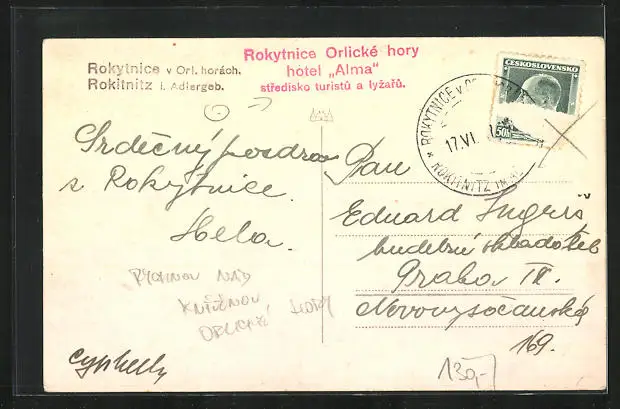 Rokytnice v Orl. horách.
Rokitnitz i. Adlergeb.
Rokytnice Orlické hory
hotel „Alma"
středisko turistů a lyžařů.
ČESKOSLOVENSKO
50h
ROKYTNICE v
17.VI.
ROKITNITZ
Srdečný pozdrav
z Rokytnice
Hela.
Pan
Eduard Ingriš
hudební skladatel
Praha IX.
Novovysočanská
169.
RYCHNOV NAD
KNĚŽNOU,
ORLICKÉ HORY
130,-